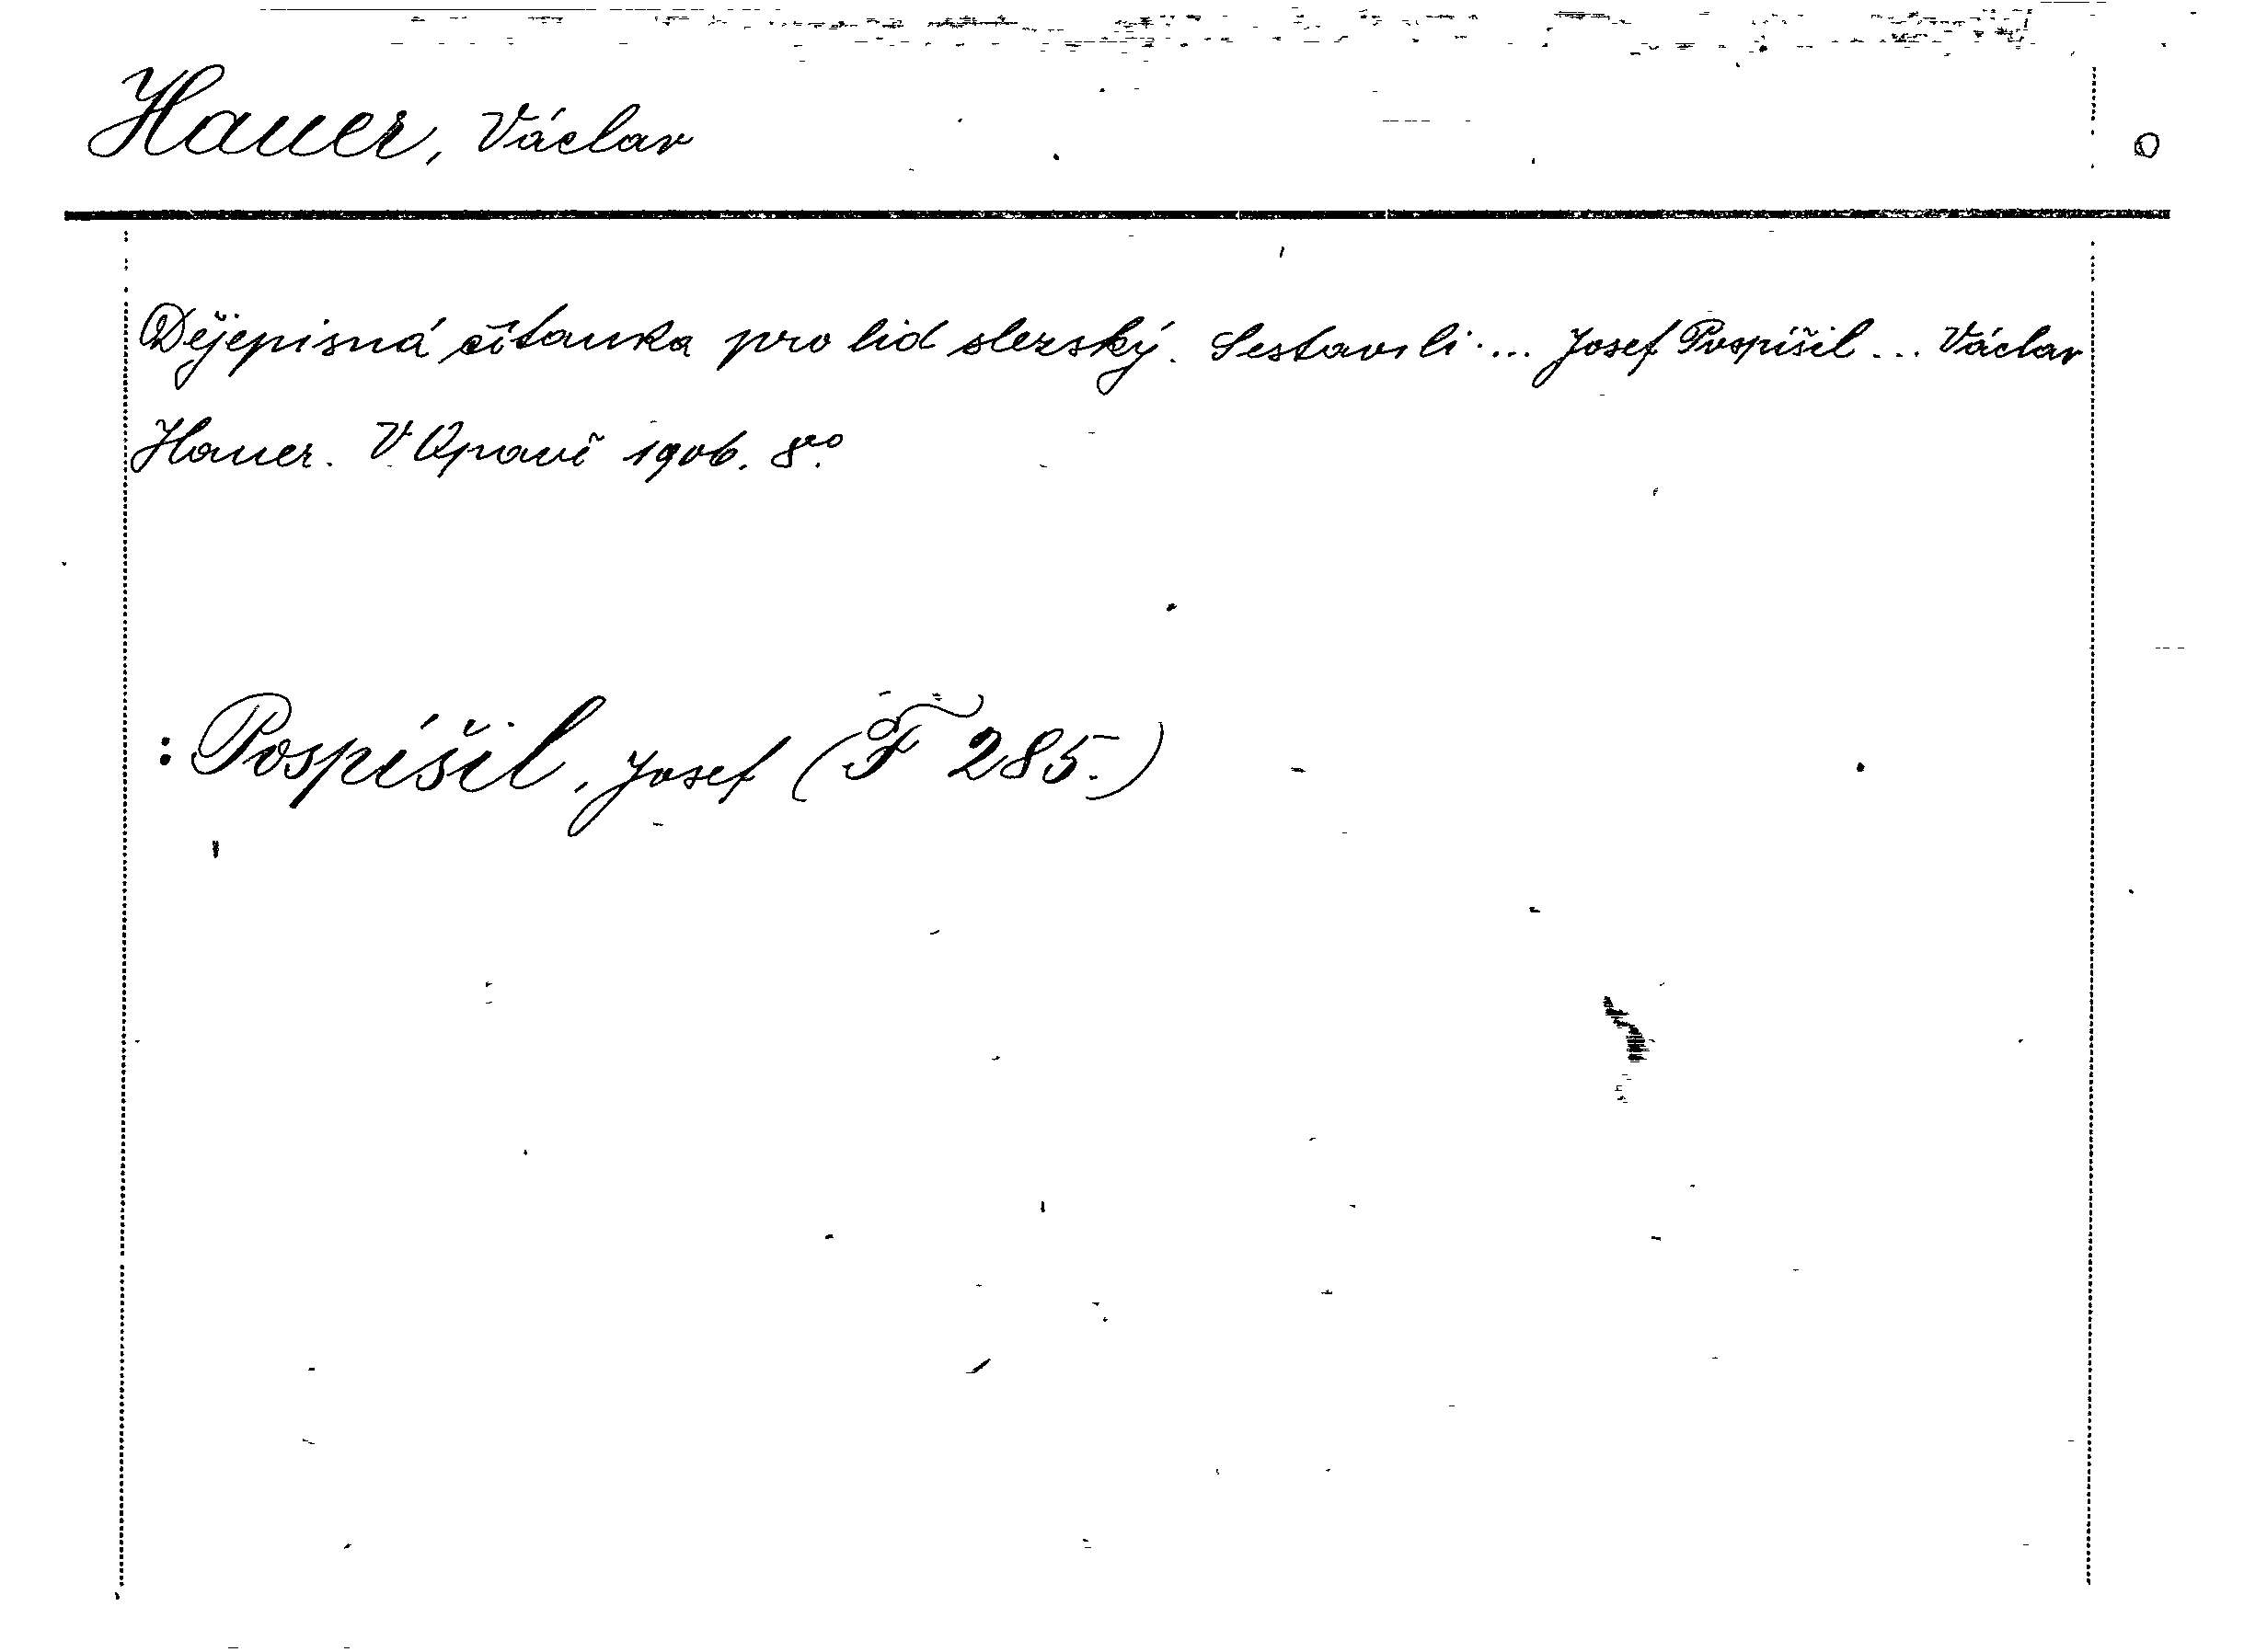 Hauer, Václav
Dějepisná čítanka pro lid slezský. Sestavili ... Josef Pospíšil ... Václav
Hauer. V Opavě 1906. 8vo.
: Pospíšil, Josef (F 285.)